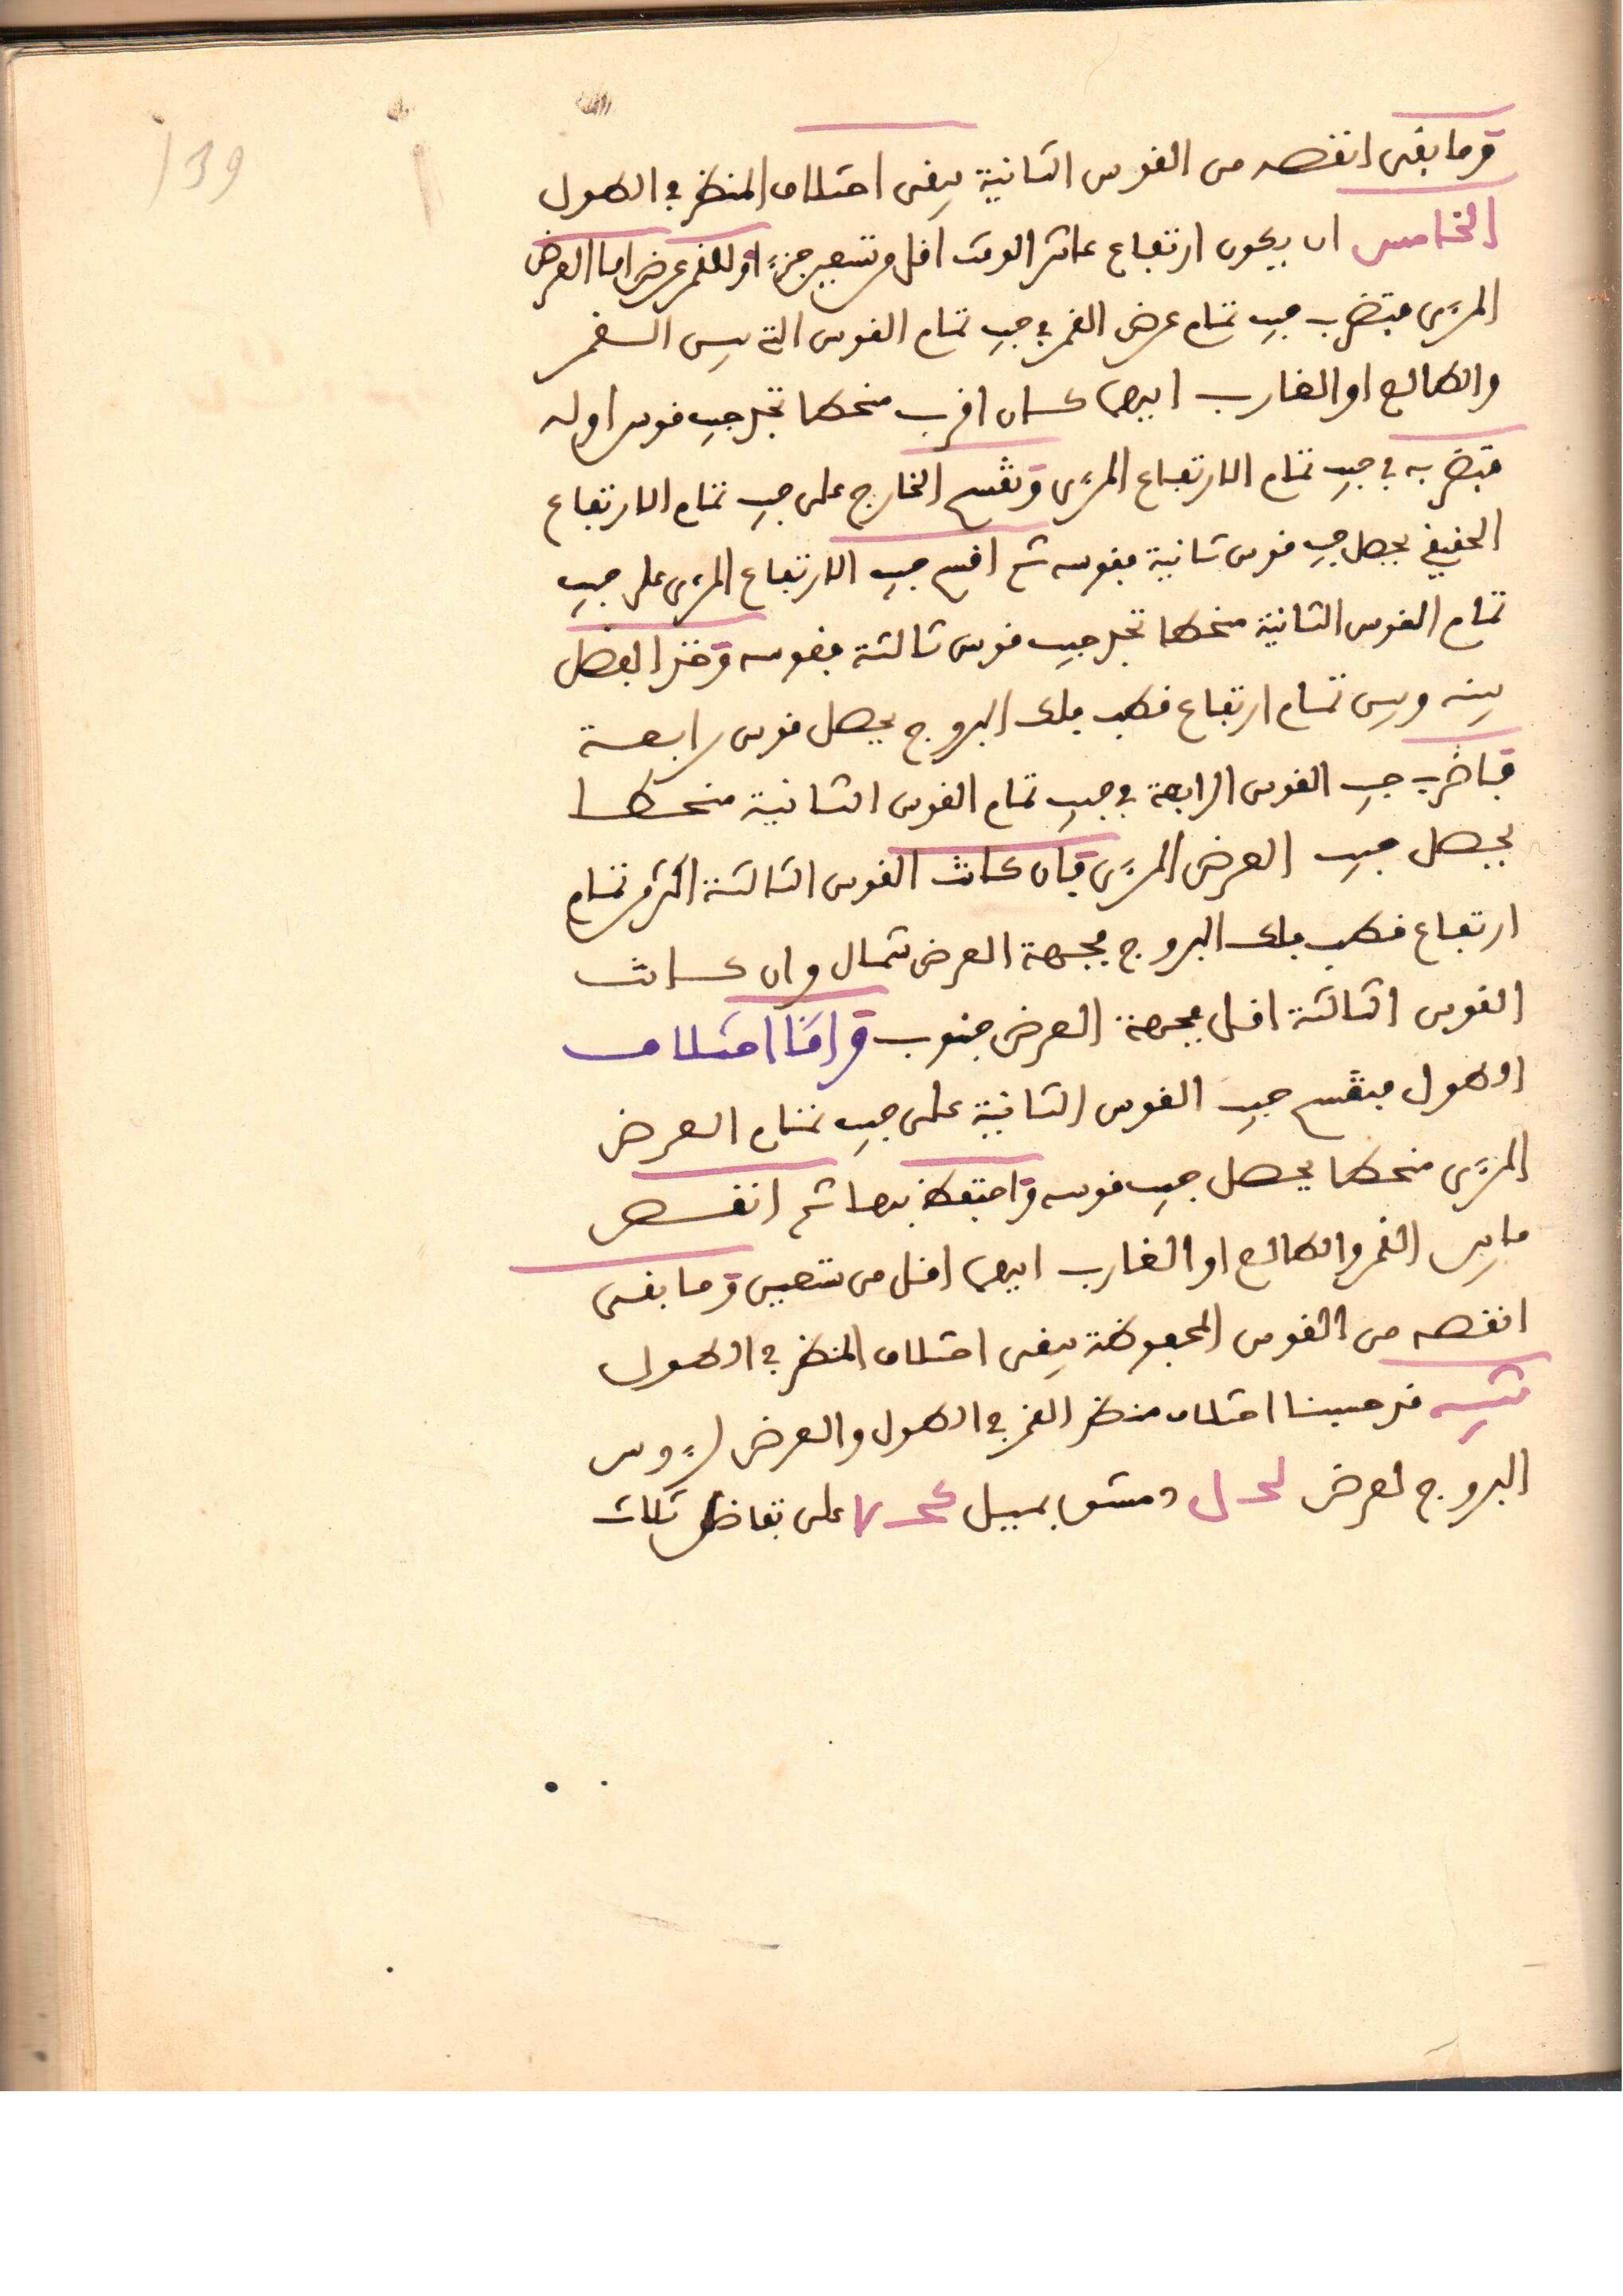 139
وما بقى انقصه من القوس الثانية يبقى اختلاف المنظر في الطول
الخامس ان يكون ارتفاع عاشر الوقت اقل من تسعين جزءً او للقمر عرض اما العرض
المرءى فتضرب جيب تمام عرض القمر في جيب تمام القوس التي بين القمر
والطالع او الغارب ايهما كان اقرب منحطا تجد جيب قوس اوله
فتضربه في جيب تمام الارتفاع المرءى وتقسم الخارج على جيب تمام الارتفاع
الحقيقي يحصل جيب قوس ثانية فقوسه ثم اقسم جيب الارتفاع المرءى على جيب
تمام القوس الثانية منحطا تجد جيب قوس ثالثة فقوسه وخذ الفضل
بينه وبين تمام ارتفاع قطب فلك البروج يحصل قوس رابعة
فاضرب جيب القوس الرابعة في جيب تمام القوس الثانية منحطا
يحصل جيب العرض المرءى فان كانت القوس الثالثة اكثر من تمام
ارتفاع قطب فلك البروج فجهة العرض شمال وان كانت
القوس الثالثة اقل فجهة العرض جنوب واما اختلاف
الطول فتقسم جيب القوس الثانية على جيب تمام العرض
المرءى منحطا يحصل جيب قوسه واحتفظ بها ثم انقص
ما بين القمر والطالع او الغارب ايهما اقل من تسعين وما بقى
انقصه من القوس المحفوظة يبقى اختلاف المنظر في الطول
تنبيه قد حسبنا اختلاف منظر القمر في الطول والعرض لرءوس
البروج لعرض لحل دمشق بميل على تفاضل ثلاث